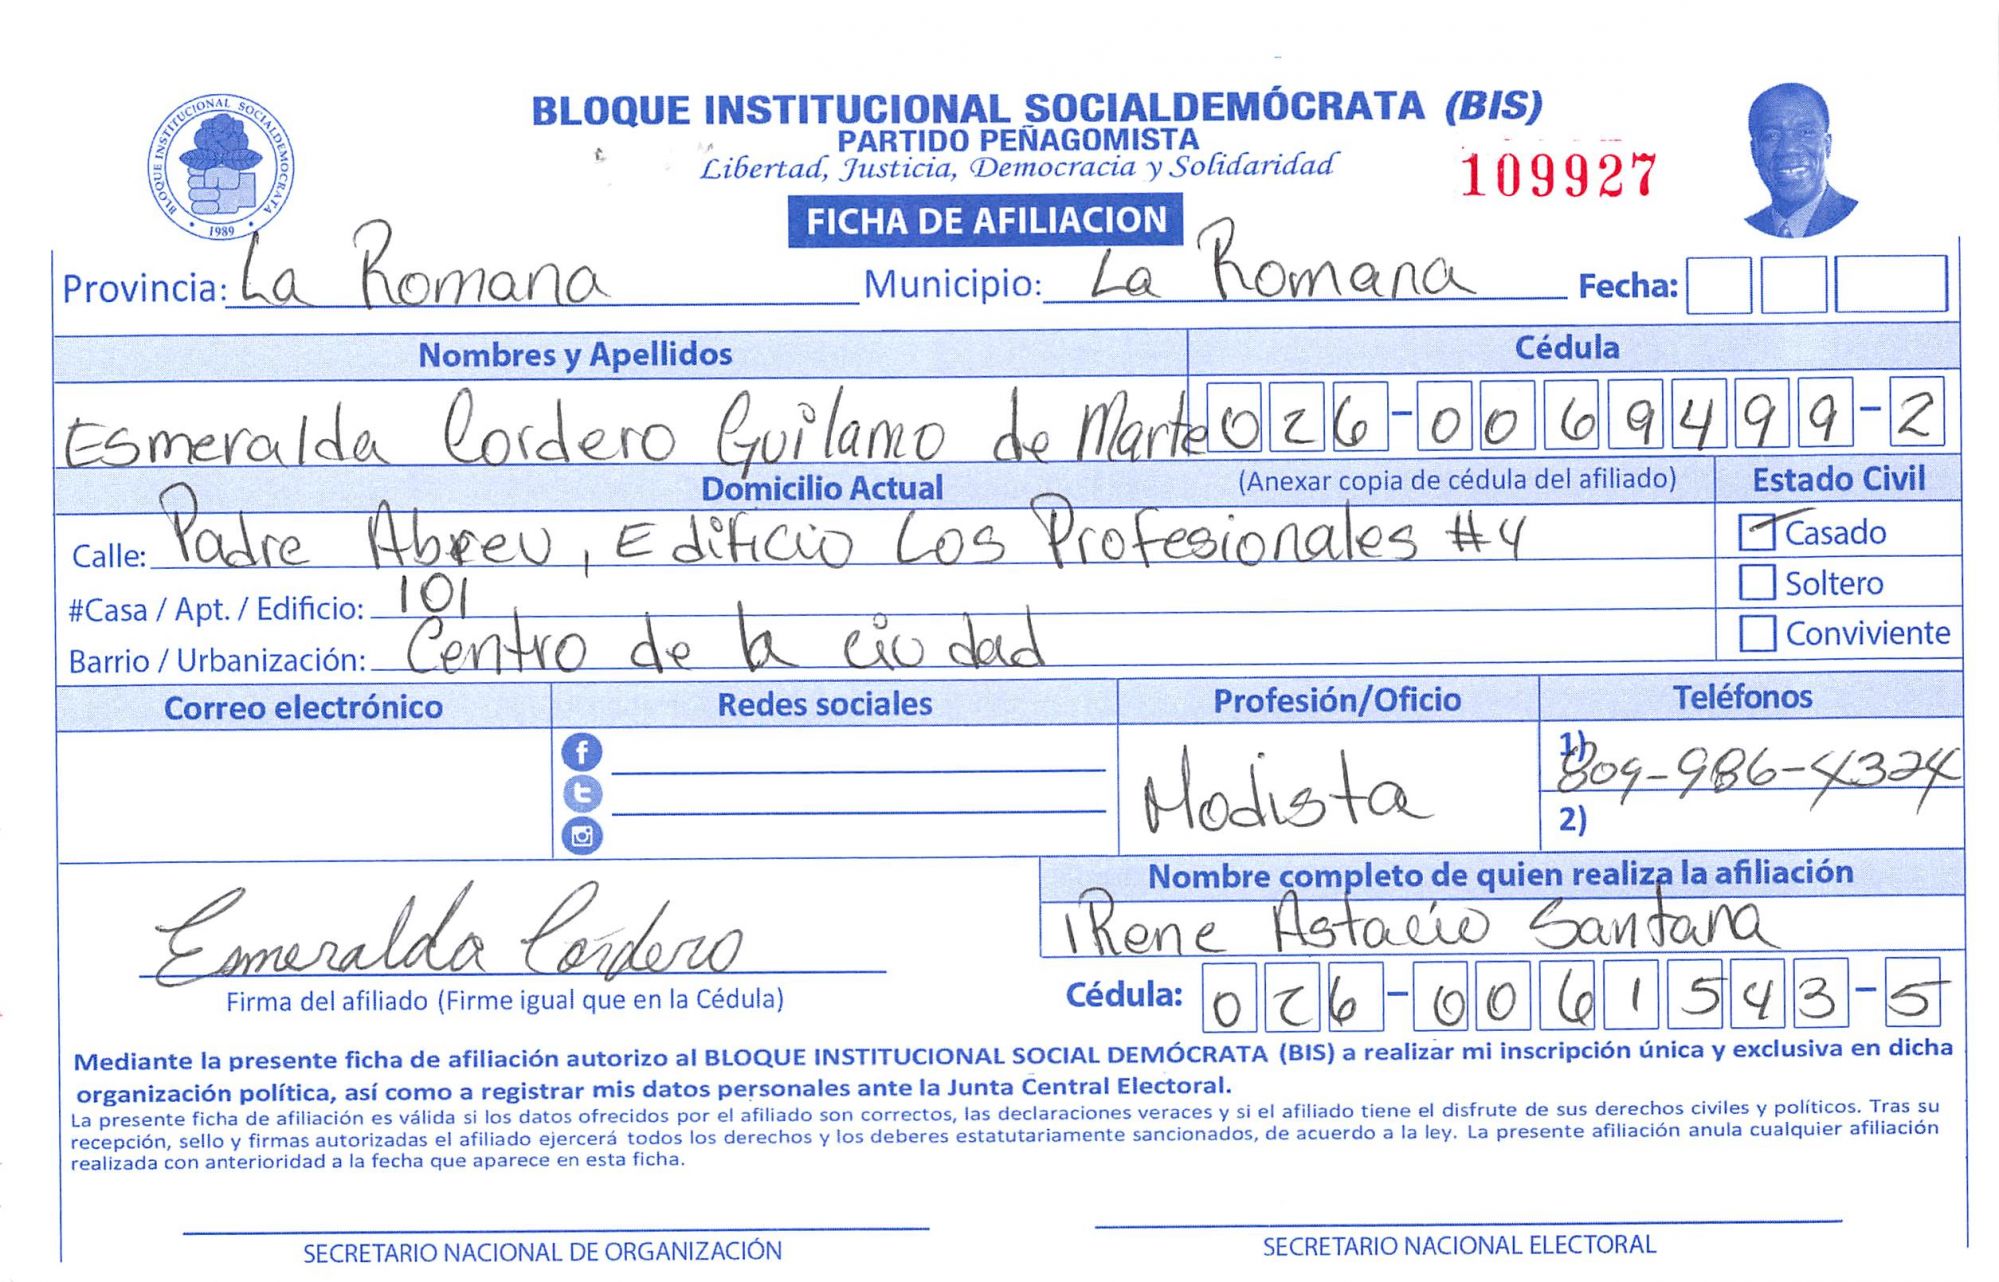 BLOQUE INSTITUCIONAL SOCIALDEMÓCRATA (BIS)
PARTIDO PEÑAGOMISTA
Libertad, Justicia, Democracia y Solidaridad
109927
BLOQUE INSTITUCIONAL SOCIALDEMOCRATA
1989
FICHA DE AFILIACION
Provincia: La Romana Municipio: La Romana Fecha:
Nombres y Apellidos Cédula
Esmeralda Cordero Guilamo de Marte 026-0069499-2
Domicilio Actual (Anexar copia de cédula del afiliado) Estado Civil
Calle: Padre Abreu, Edificio Los Profesionales #4 Casado
#Casa / Apt. / Edificio: 101 Soltero
Barrio / Urbanización: Centro de la ciudad Conviviente
Correo electrónico Redes sociales Profesión/Oficio Teléfonos
Modista 1) 809-986-4324
2)
Nombre completo de quien realiza la afiliación
IRene Astacio Santana
Esmeralda Cordero
Firma del afiliado (Firme igual que en la Cédula) Cédula: 026-0061543-5
Mediante la presente ficha de afiliación autorizo al BLOQUE INSTITUCIONAL SOCIAL DEMÓCRATA (BIS) a realizar mi inscripción única y exclusiva en dicha
organización política, así como a registrar mis datos personales ante la Junta Central Electoral.
La presente ficha de afiliación es válida si los datos ofrecidos por el afiliado son correctos, las declaraciones veraces y si el afiliado tiene el disfrute de sus derechos civiles y políticos. Tras su
recepción, sello y firmas autorizadas el afiliado ejercerá todos los derechos y los deberes estatutariamente sancionados, de acuerdo a la ley. La presente afiliación anula cualquier afiliación
realizada con anterioridad a la fecha que aparece en esta ficha.
SECRETARIO NACIONAL DE ORGANIZACIÓN SECRETARIO NACIONAL ELECTORAL